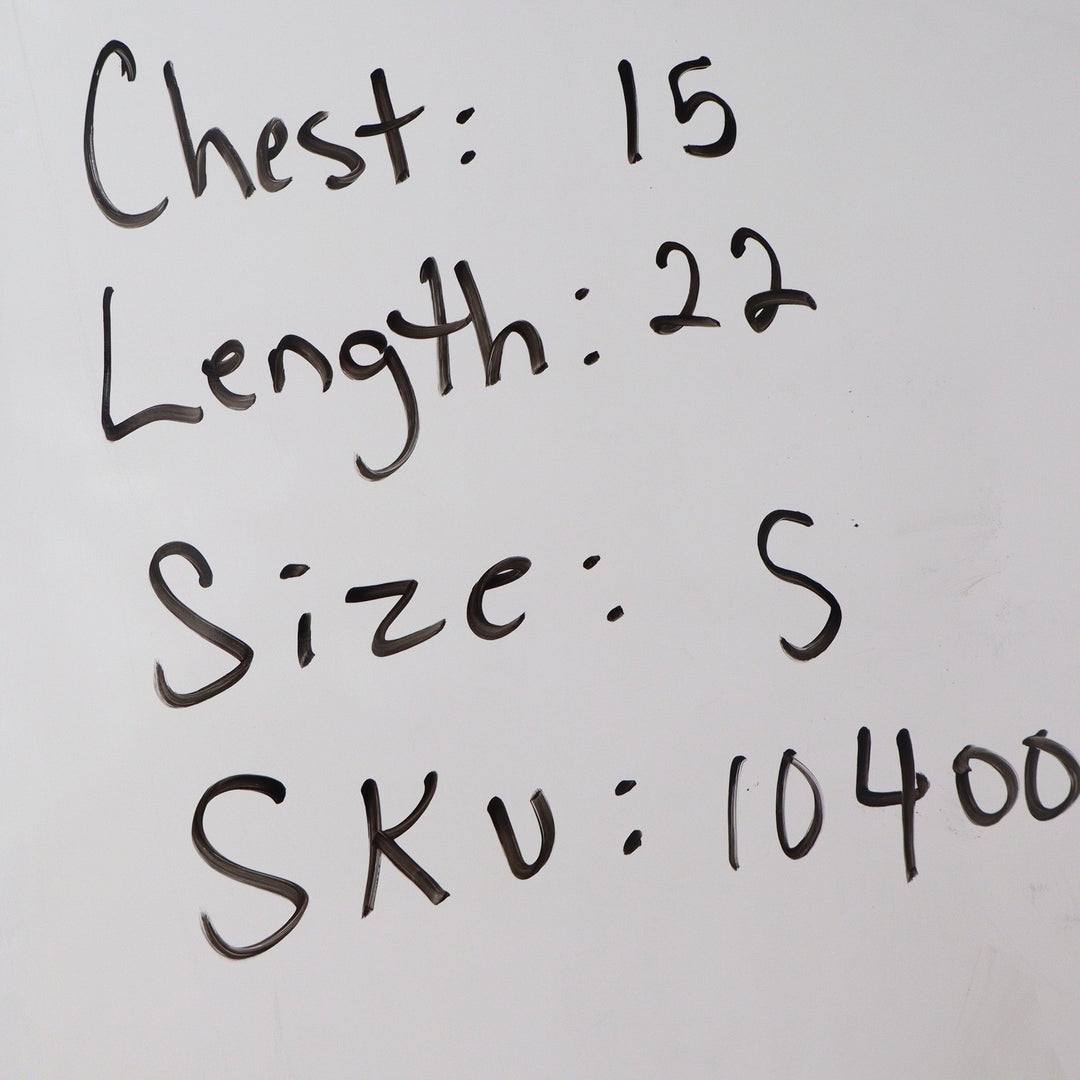 Chest: 15
Length: 22
Size: S
SKU: 10400